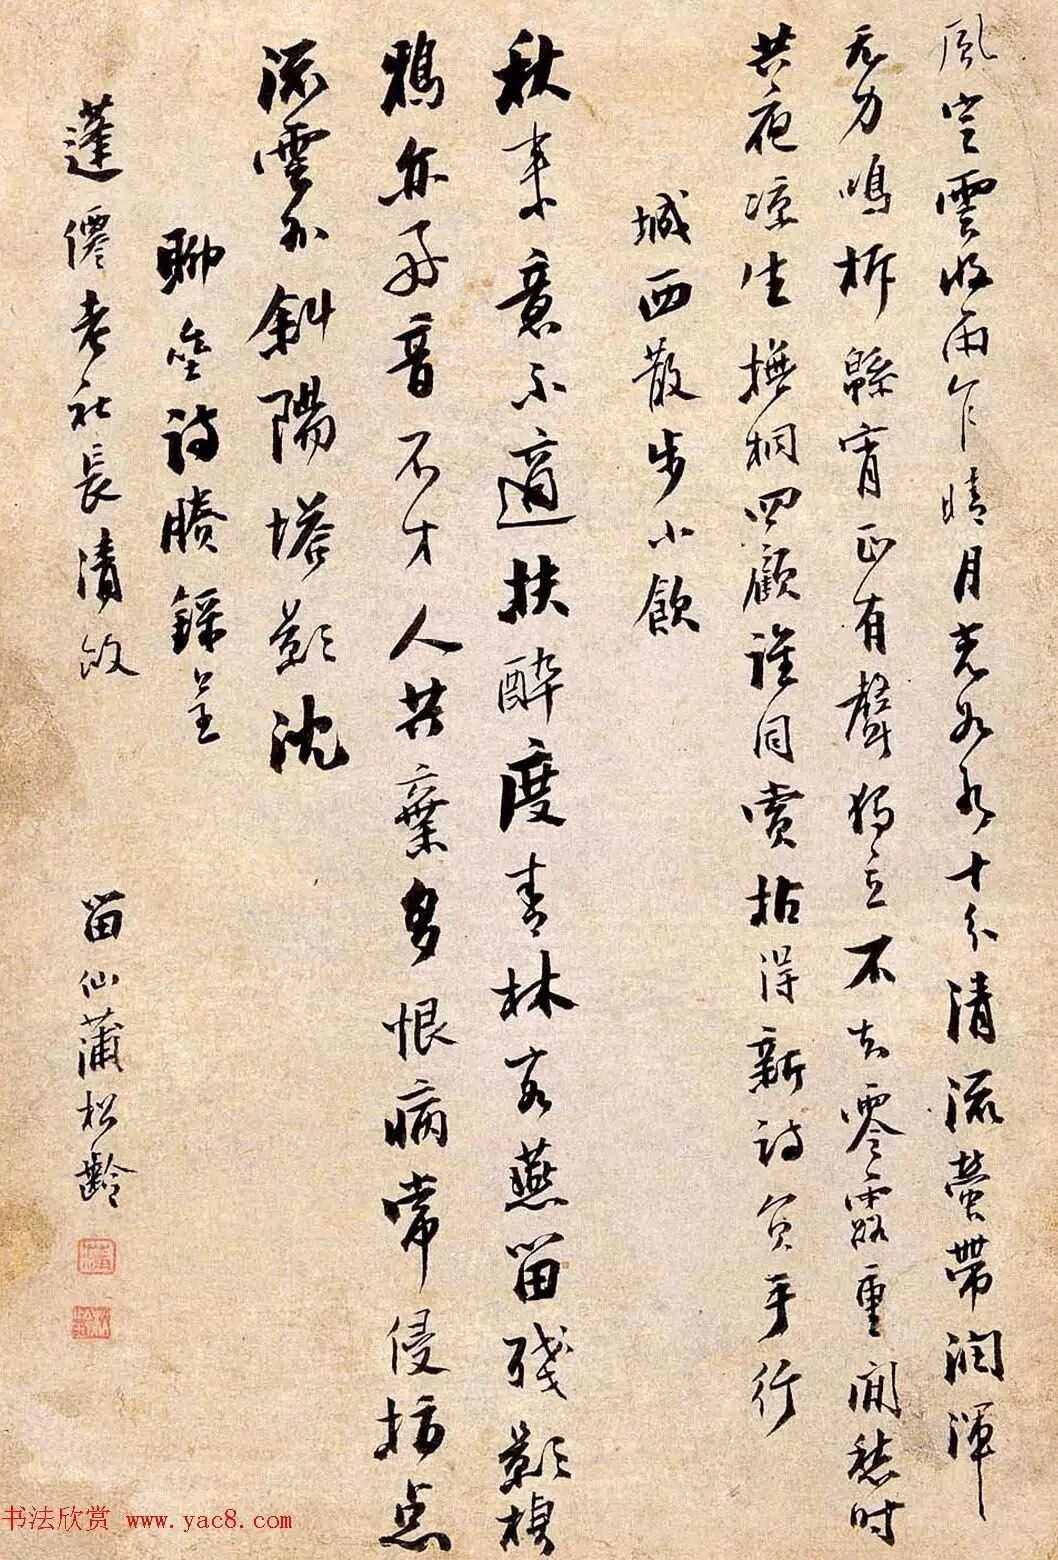 風定雲收雨乍晴月光如水十分清流螢帶潤渾
无力鳴柝緜宵正有聲獨立不知零露重閒愁时
共夜凉生撫桐四顧誰同賞拈得新詩負手行
城西散步小飲
秋来意不適扶醉度青林客燕留殘影棲
鴉亦好音不才人共棄多恨病常侵招点
流雲外斜陽塔影沈
聊齋詩賸錄呈
蓬僊老社長清政
留仙蒲松齡
书法欣赏 www.yac8.com